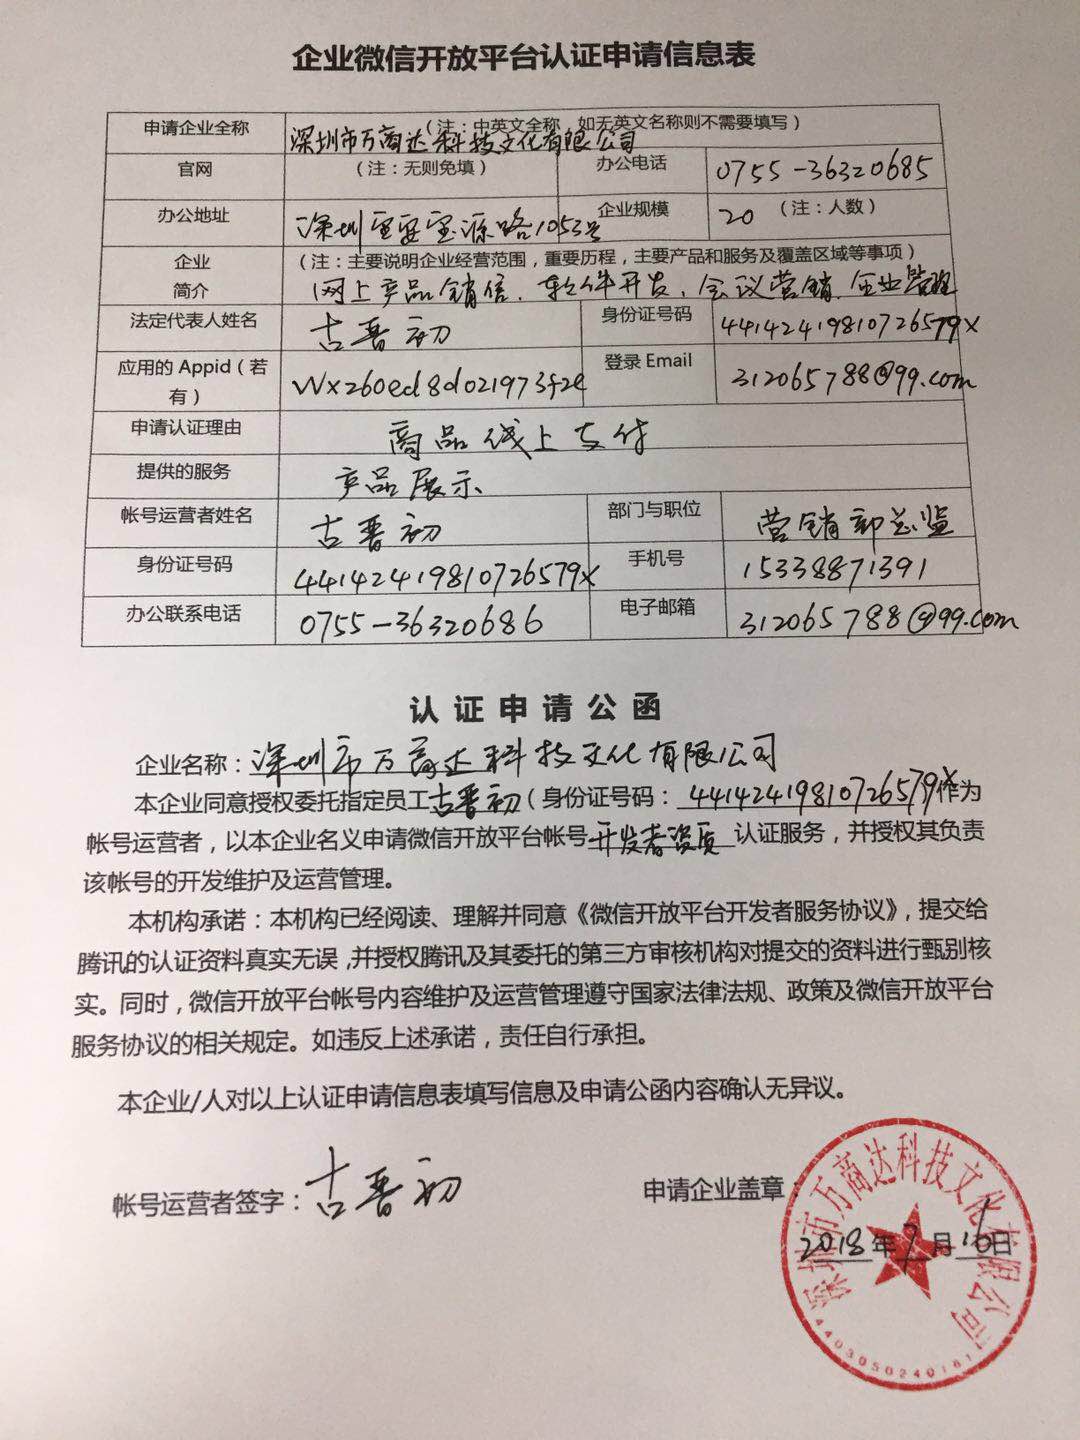 企业微信开放平台认证申请信息表
申请企业全称 (注：中英文全称，如无英文名称则不需要填写)
深圳市万商达科技文化有限公司
官网 (注：无则免填) 办公电话 0755-36320685
办公地址 深圳宝安宝源路1053号 企业规模 20 (注：人数)
企业 (注：主要说明企业经营范围，重要历程，主要产品和服务及覆盖区域等事项)
简介 网上产品销售、软件开发、会议营销、企业管理
法定代表人姓名 古晋初 身份证号码 44142419810726579X
应用的 Appid（若 wx260ed8d021973f2e 登录 Email 312065788@qq.com
有）
申请认证理由 商品线上支付
提供的服务 产品展示
帐号运营者姓名 古晋初 部门与职位 营销部总监
身份证号码 44142419810726579X 手机号 15338871391
办公联系电话 0755-36320686 电子邮箱 312065788@qq.com
认证申请公函
企业名称：深圳市万商达科技文化有限公司
本企业同意授权委托指定员工古晋初（身份证号码：44142419810726579X作为
帐号运营者，以本企业名义申请微信开放平台帐号开发者资质认证服务，并授权其负责
该帐号的开发维护及运营管理。
本机构承诺：本机构已经阅读、理解并同意《微信开放平台开发者服务协议》，提交给
腾讯的认证资料真实无误，并授权腾讯及其委托的第三方审核机构对提交的资料进行甄别核
实。同时，微信开放平台帐号内容维护及运营管理遵守国家法律法规、政策及微信开放平台
服务协议的相关规定。如违反上述承诺，责任自行承担。
本企业/人对以上认证申请信息表填写信息及申请公函内容确认无异议。
帐号运营者签字：古晋初 申请企业盖章：
2018年7月16日
深圳市万商达科技文化有限公司